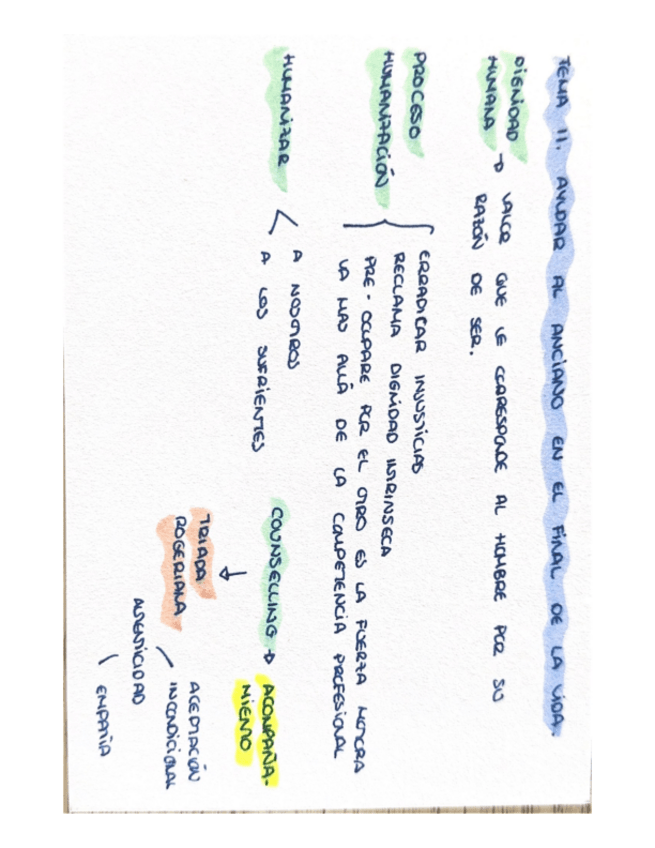 TEMA 11. AYUDAR AL ANCIANO EN EL FINAL DE LA VIDA.
DIGNIDAD HUMANA → VALOR QUE LE CORRESPONDE AL HOMBRE POR SU
RAZÓN DE SER.
PROCESO
HUMANIZACIÓN
ERRADICAR INJUSTICIAS
RECLAMA DIGNIDAD INTRINSECA
PRE-OCUPARE POR EL OTRO ES LA FUERZA MOTORA
VA MAS ALLÁ DE LA COMPETENCIA PROFESIONAL
HUMANIZAR
A NOSOTROS
A LOS SUFRIENTES
COUNSELLING → ACOMPAÑA-
MIENTO
TRIADA
ROGERIANA
ACEPTACIÓN
INCONDICIONAL
AUTENTICIDAD
EMPATÍA